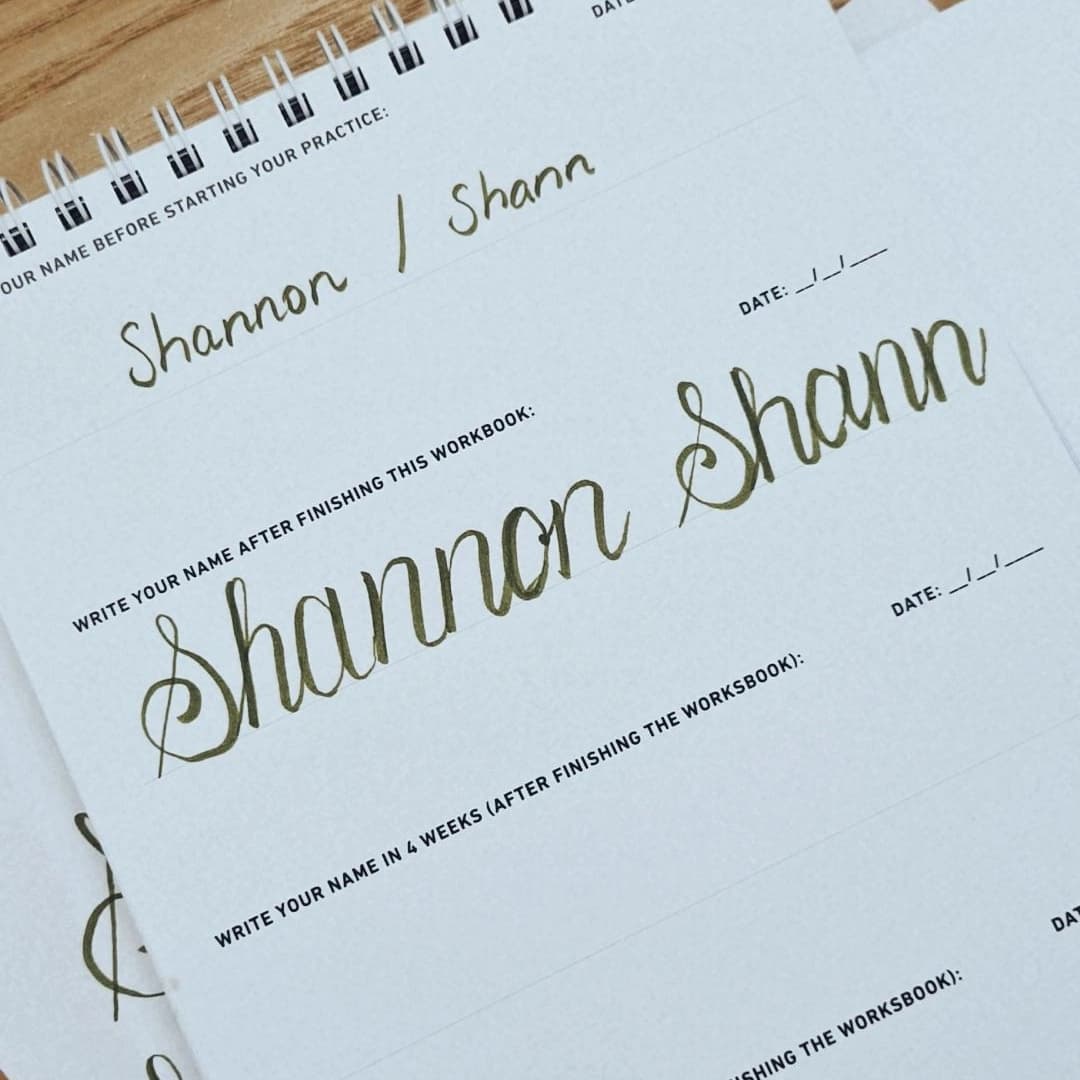 OUR NAME BEFORE STARTING YOUR PRACTICE:
Shannon / Shann
DATE: __/__/___
WRITE YOUR NAME AFTER FINISHING THIS WORKBOOK:
Shannon Shann
DATE: __/__/___
WRITE YOUR NAME IN 4 WEEKS (AFTER FINISHING THE WORKSBOOK):
SHING THE WORKSBOOK):